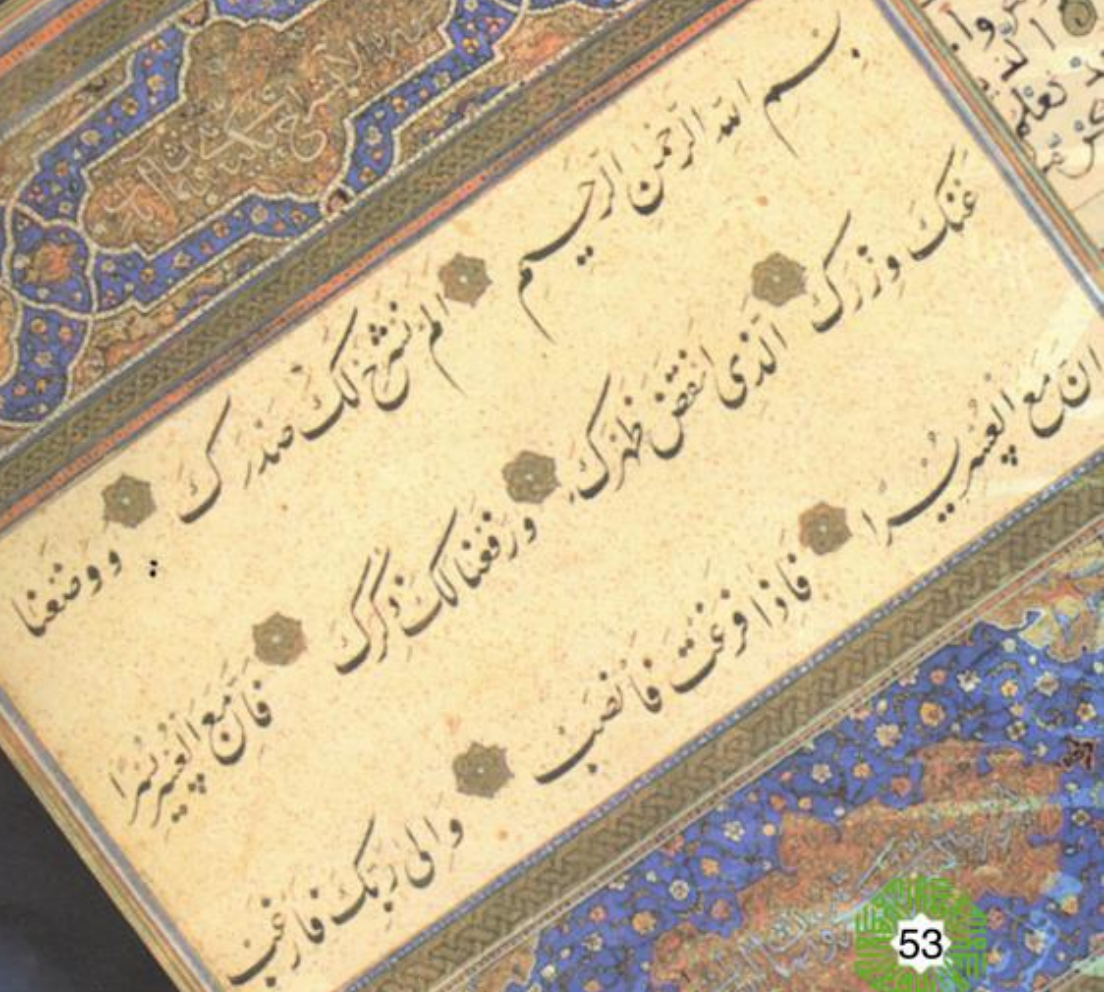 بسم الله الرحمن الرحيم الم نشرح لك صدرك ووضعنا
عنك وزرك الذى انقض ظهرك ورفعنا لك ذكرك فان مع العسر يسرا
ان مع العسر يسرا فاذا فرغت فانصب والى ربك فارغب
53